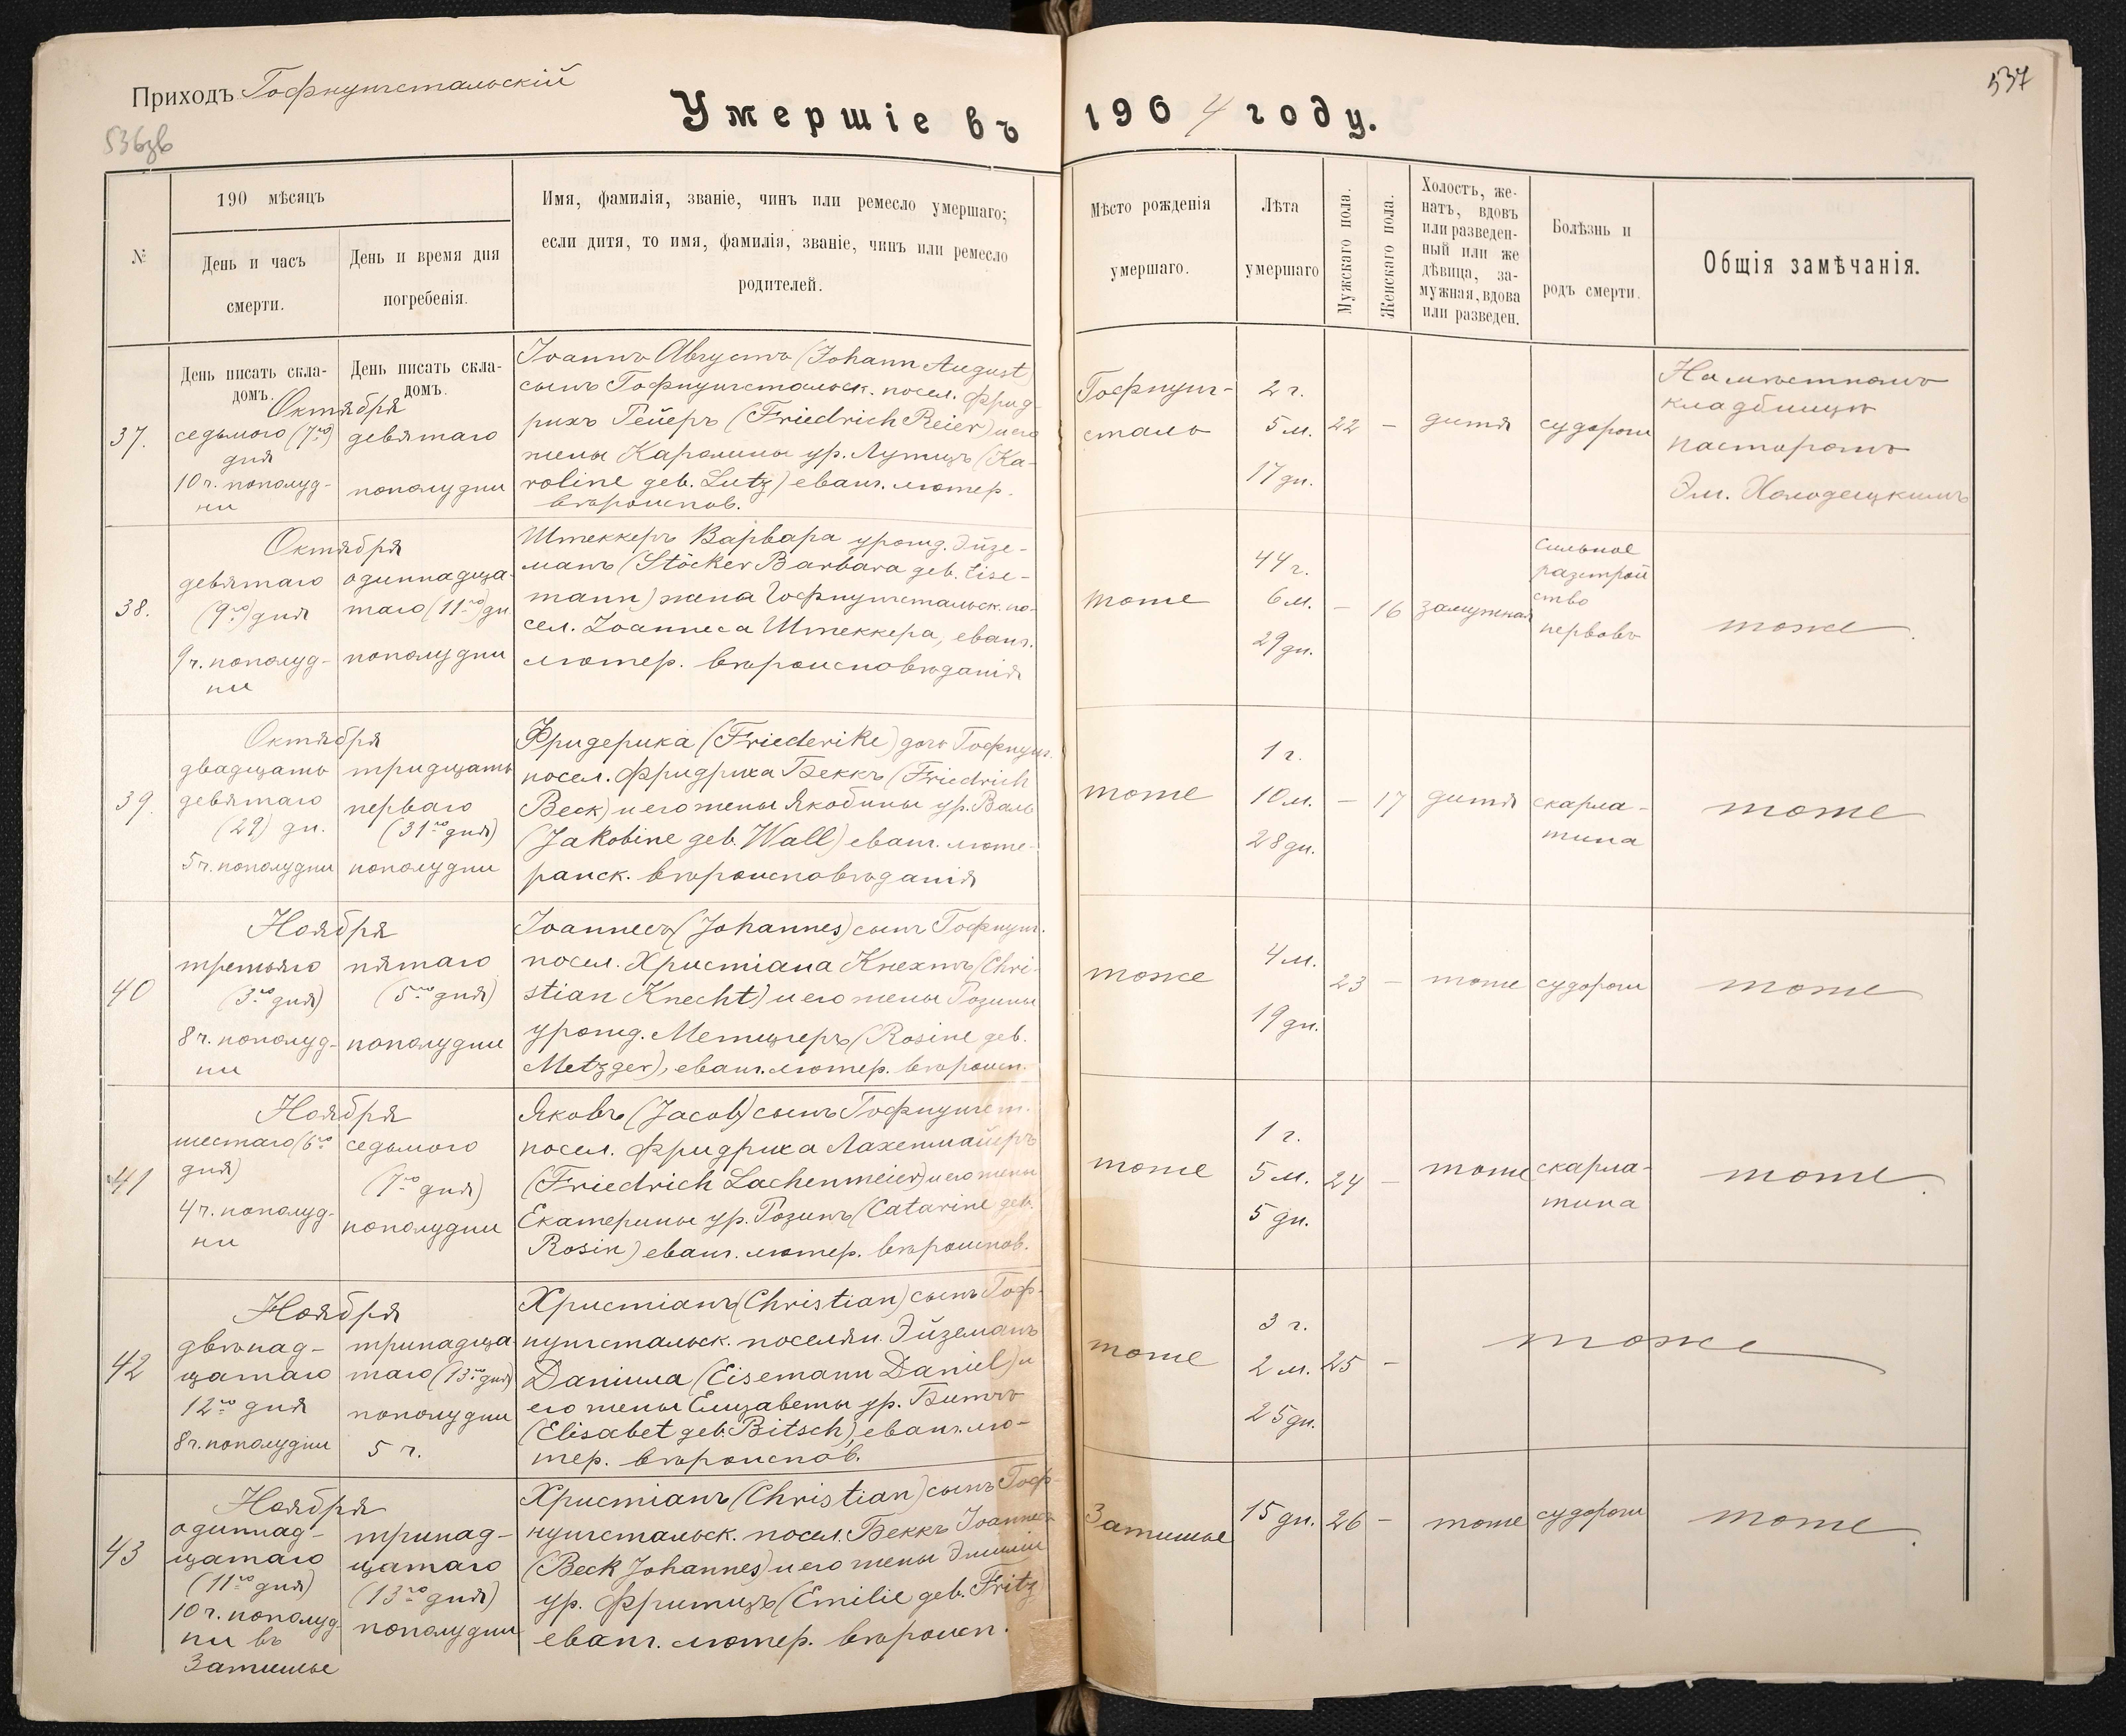 Приходъ Гофнунгстальскій
536зв
537
Умершіе въ 1904 году.
№
190 мѣсяцъ
День и часъ
смерти.
День и время дня
погребенія.
Имя, фамилія, званіе, чинъ или ремесло умершаго;
если дитя, то имя, фамилія, званіе, чинъ или ремесло
родителей.
Мѣсто рожденія
умершаго.
Лѣта
умершаго
Мужскаго пола.
Женскаго пола.
Холостъ, же-
натъ, вдовъ
или разведен-
ный или же
дѣвица, за-
мужная, вдова
или разведен.
Болѣзнь и
родъ смерти.
Общія замѣчанія.
День писать скла-
домъ.
День писать скла-
домъ.
37.
Октября
седьмого (7го)
дня
10 ч. пополуд-
ни
девятаго
пополудни
Іоаннъ Августъ (Johann August)
сынъ Гофнунгстальск. посел. Фрид-
рихъ Рейеръ (Friedrich Reier) и его
жены Каролины ур. Лутцъ (Ka-
roline geb. Lutz) еванг. лютер.
вѣроиспов.
Гофнунг-
сталь
2 г.
5 м.
17 дн.
22
-
дитя
судороги
На мѣстномъ
кладбищѣ
пасторомъ
Эм. Холодецкимъ
38.
Октября
девятаго
(9го) дня
9 ч. пополуд-
ни
одиннадца-
таго (11го) дн.
пополудни
Штеккеръ Варвара урожд. Эйзе-
манъ (Stöcker Barbara geb. Eise-
mann) жена Гофнунгстальск. по-
сел. Іоаннеса Штеккера, еванг.
лютер. вѣроисповѣданія
тоже
44 г.
6 м.
29 дн.
-
16
замужная
сильное
разстрой
ство
нервовъ
тоже
39.
Октября
двадцать
девятаго
(29) дн.
5 ч. пополудни
тридцать
перваго
(31го дня)
пополудни
Фридерика (Friederike) дочь Гофнунг.
посел. Фридриха Беккъ (Friedrich
Beck) и его жены Якобины ур. Валь
(Jakobine geb. Wall) еванг. люте-
ранск. вѣроисповѣданія
тоже
1 г.
10 м.
28 дн.
-
17
дитя
скарла-
тина
тоже
40
Ноября
третьяго
(3го дня)
8 ч. пополуд-
ни
пятаго
(5го дня)
пополудни
Іоаннесъ (Johannes) сынъ Гофнунг.
посел. Христіана Кнехтъ (Chri-
stian Knecht) и его жены Розины
урожд. Метцгеръ (Rosine geb.
Metzger), еванг. лютер. вѣроисп.
тоже
4 м.
19 дн.
23
-
тоже
судороги
тоже
41
Ноября
шестаго (6го
дня)
4 ч. пополуд-
ни
седьмого
(7го дня)
пополудни
Яковъ (Jacob) сынъ Гофнунгст.
посел. Фридриха Лахенмайеръ
(Friedrich Lachenmeier) и его жены
Екатерины ур. Розинъ (Catarine geb.
Rosin) еванг. лютер. вѣроиспов.
тоже
1 г.
5 м.
5 дн.
24
-
тоже
скарла-
тина
тоже
42
Ноября
двѣнад-
цатаго
12го дня
8 ч. пополудни
тринадца-
таго (13го дня)
пополудни
5 ч.
Христіанъ (Christian) сынъ Гоф-
нунгстальск. поселян. Эйземанъ
Даніила (Eisemann Daniel) и
его жены Елизаветы ур. Битчъ
(Elisabet geb. Bitsch), еванг. лю-
тер. вѣроиспов.
тоже
3 г.
2 м.
25 дн.
25
-
тоже
43
Ноября
одиннад-
цатаго
(11го дня)
10 ч. пополуд-
ни въ
Затишье
тринад-
цатаго
(13го дня)
пополудни
Христіанъ (Christian) сынъ Гоф-
нунгстальск. посел. Беккъ Іоаннеса
(Beck Johannes) и его жены Эмиліи
ур. Фритцъ (Emilie geb. Fritz)
еванг. лютер. вѣроисп.
Затишье
15 дн.
26
-
тоже
судороги
тоже